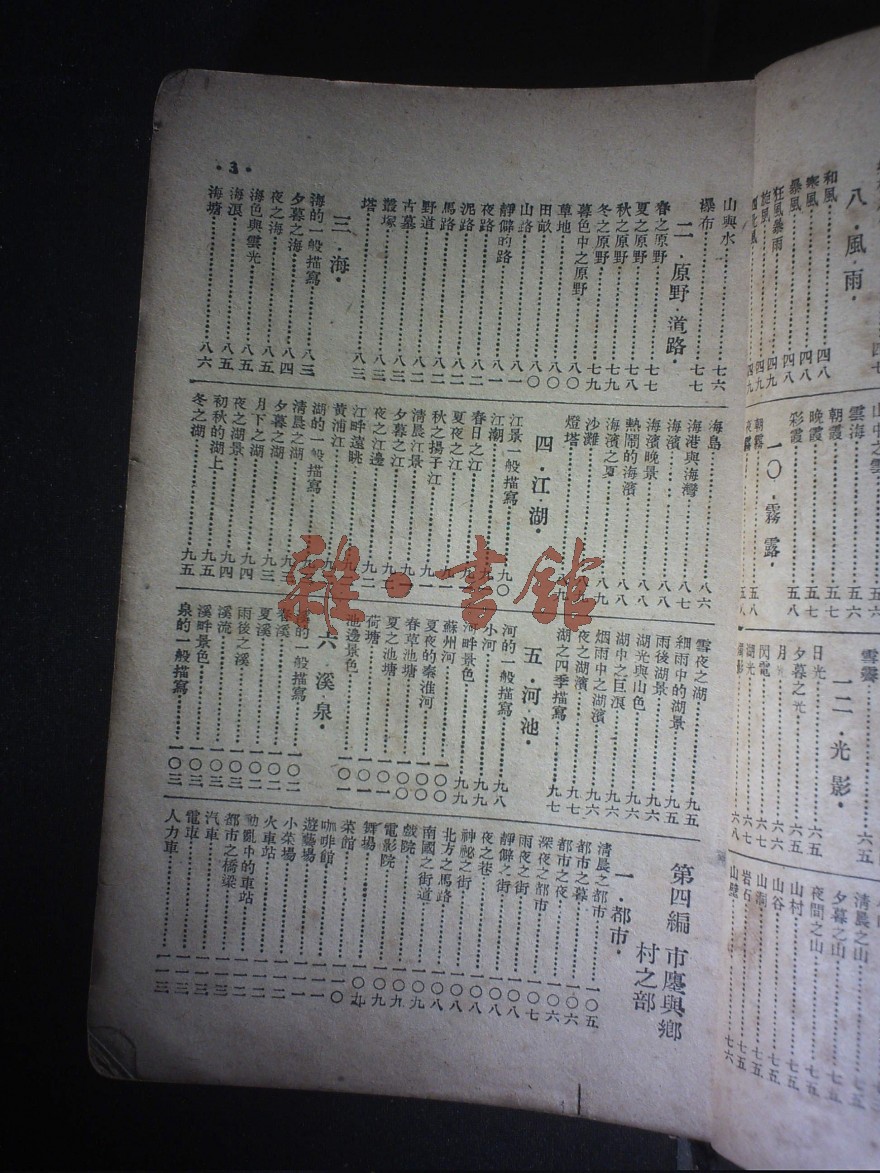 八．風雨．
和風……四八
寒風……四八
暴風……四八
狂風暴雨……四九
旋風……四九
雲海……五六
朝霞……五七
晚霞……五七
彩霞……五八
一〇．霧露．
朝霧……五八
一二．光影．
日光……六五
夕暮之光……六五
閃電……六七
湖光……六七
清晨之山
夕暮之山……七五
夜間之山……七五
山村……七五
山谷……七五
山洞……七五
岩石……七五
山壁……七六
．3．
山與水……七六
瀑布……七七
二．原野．道路．
春之原野……七七
夏之原野……七八
秋之原野……七九
冬之原野……七九
暮色中之原野……八〇
草地……八〇
田畝……八〇
山路……八一
靜僻的路……八一
夜路……八二
泥路……八二
馬路……八二
野道……八二
古墓……八三
叢塚……八三
塔……八三
三．海．
海的一般描寫……八三
夕暮之海……八四
夜之海……八五
海色與雲光……八五
海浪……八五
海塘……八六
海島……八六
海港與海灣……八七
海濱……八八
海濱晚景……八八
熱鬧的海濱……八八
海濱之夏……八九
沙灘
燈塔
四．江湖．
江景一般描寫……九〇
江潮
春日之江
夏夜之江
秋之揚子江
清晨江景
夕暮之江
夜之江邊
江畔遠眺
黃浦江
湖的一般描寫
清晨之湖
夕暮之湖……九三
月下之湖……九三
夜之湖景……九四
初秋的湖上……九五
冬之湖……九五
雪夜之湖……九五
細雨中的湖景……九五
雨後湖景……九六
湖光與山色……九六
湖中之巨浪……九六
烟雨中之湖濱……九六
夜之湖濱……九七
湖之四季描寫……九七
五．河池．
河的一般描寫……九八
小河……九九
河畔景色……九九
蘇州河……一〇〇
夏夜的秦淮河……一〇〇
春草池塘……一〇〇
夏之池塘……一〇一
荷塘……一〇一
池邊景色……一〇一
六．溪泉．
溪的一般描寫……一〇二
春溪……一〇二
夏溪……一〇二
雨後之溪……一〇二
溪流……一〇三
溪畔景色……一〇三
泉的一般描寫……一〇三
第四編 市廛與鄉村之部
一．都市．
清晨之都市……一〇五
都市之暮……一〇六
都市之夜……一〇六
深夜之都市……一〇七
雨夜之街……一〇八
靜僻之街……一〇八
夜之巷……一〇八
神祕之街……一〇八
北方之馬路……一〇八
南國之街道……一〇八
戲院……一〇九
電影院……一〇九
舞場……一〇九
菜館……一一〇
咖啡館……一一一
遊藝場……一一一
小菜場……一一二
火車站……一一二
動亂中的車站……一一二
都市之橋梁……一一二
汽車……一一三
電車……一一三
人力車……一一三
雜．書館